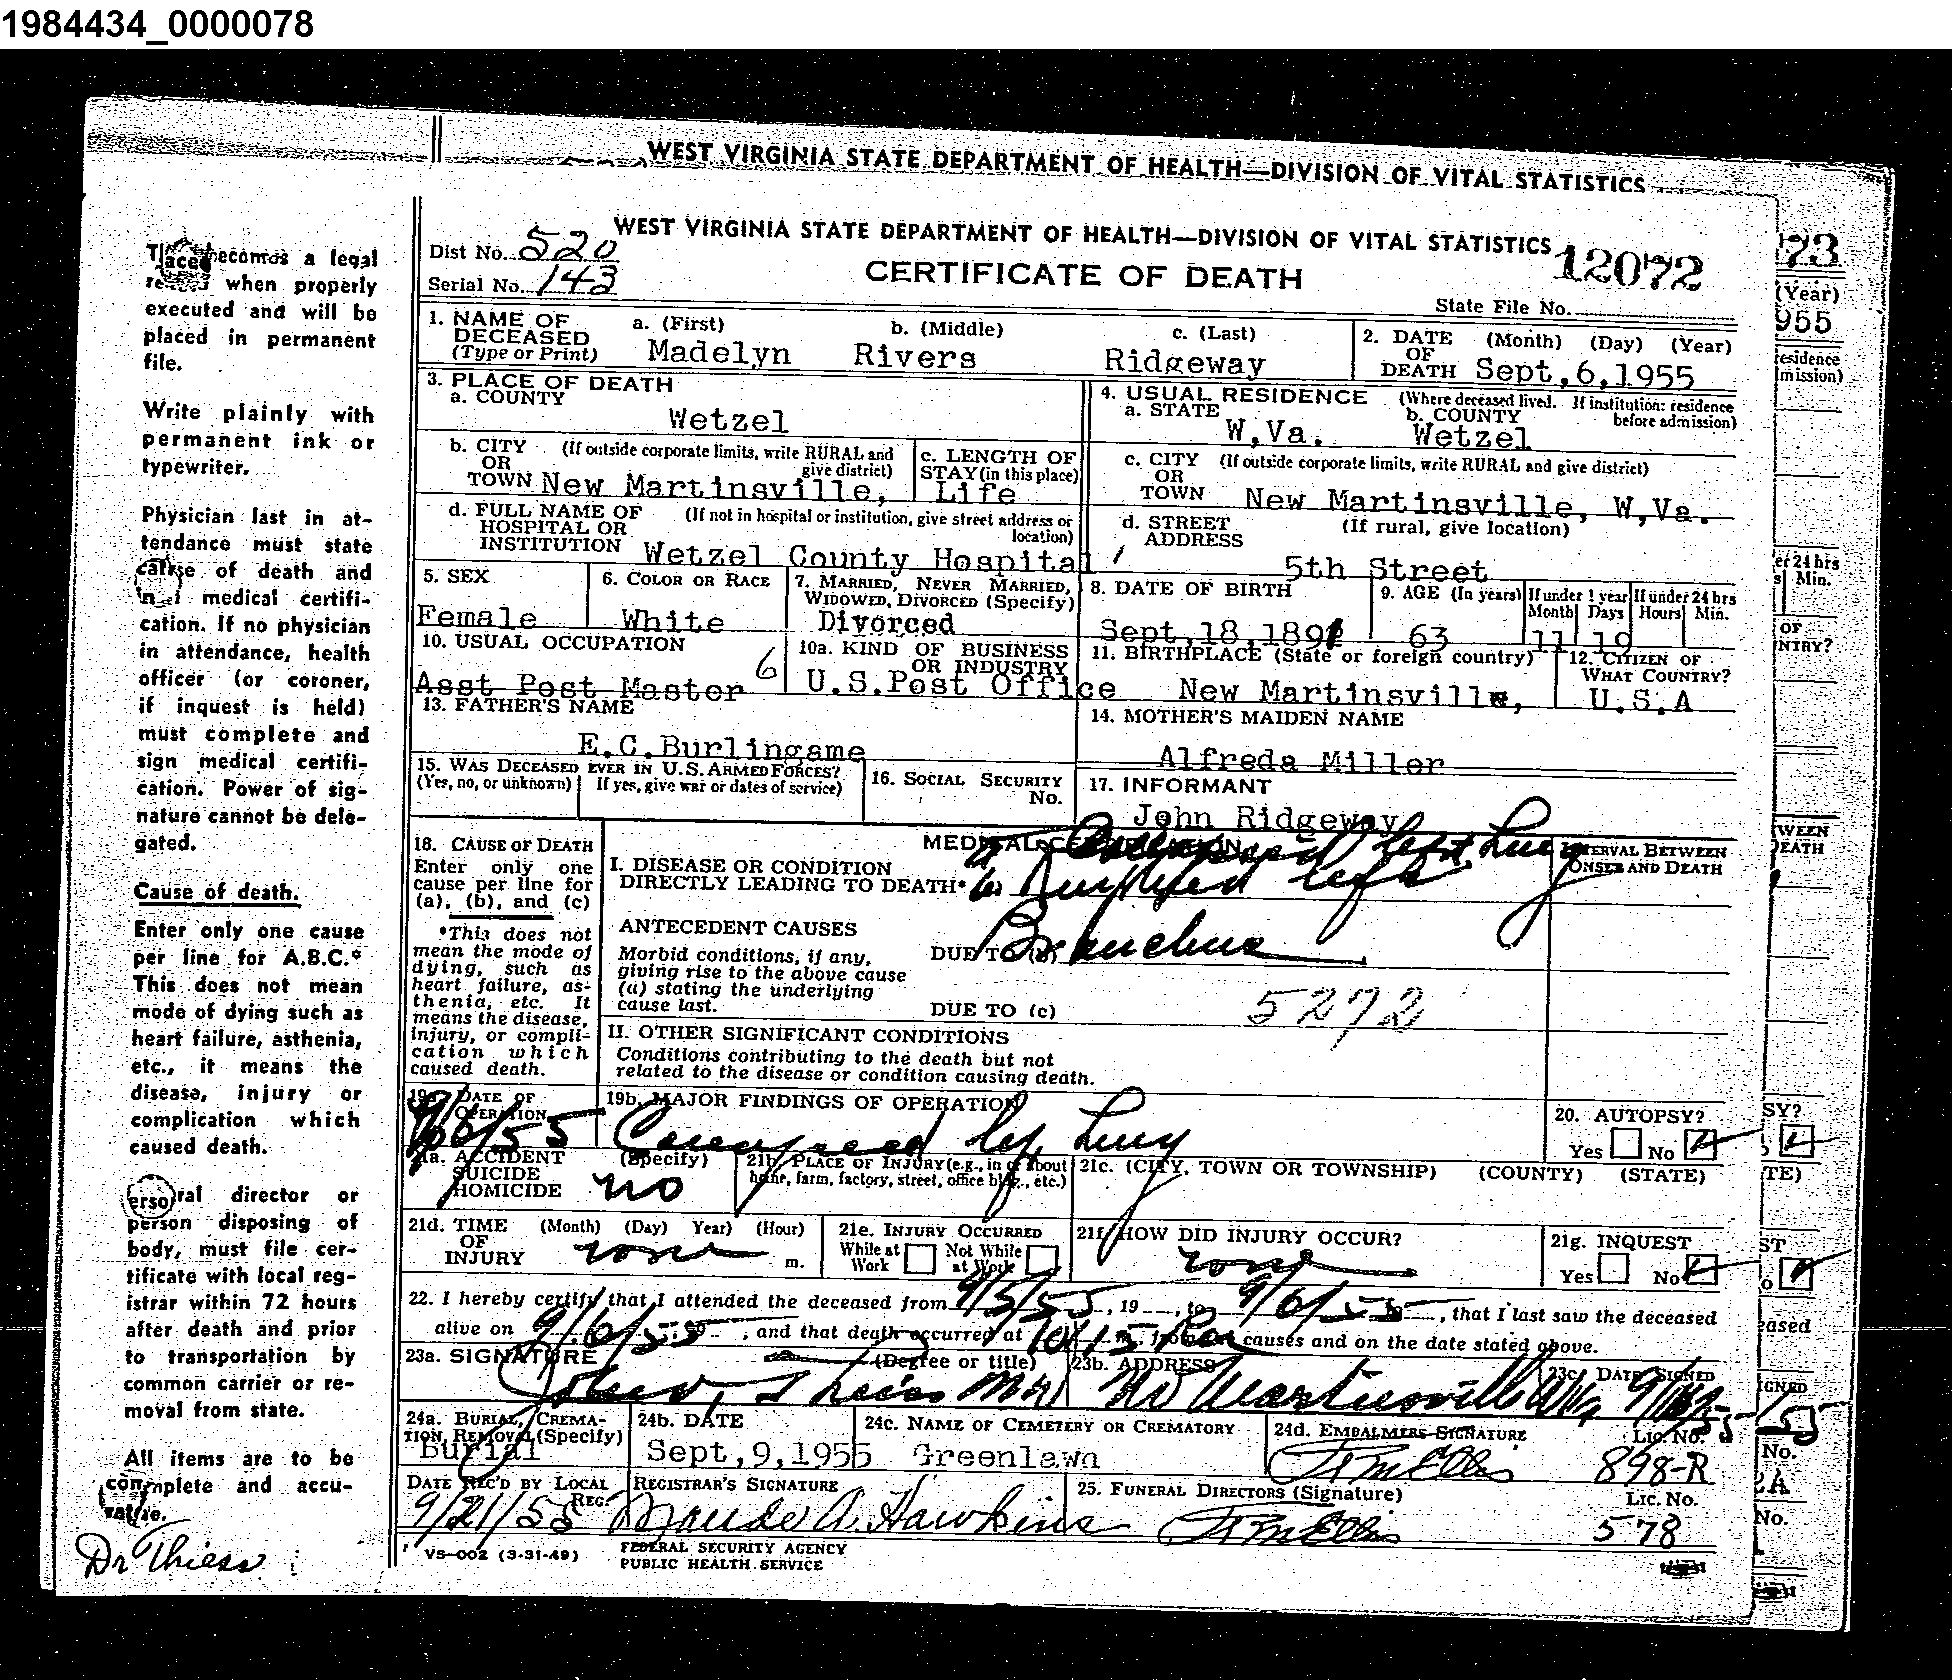 1984434_0000078
WEST VIRGINIA STATE DEPARTMENT OF HEALTH—DIVISION OF VITAL STATISTICS
WEST VIRGINIA STATE DEPARTMENT OF HEALTH—DIVISION OF VITAL STATISTICS
Dist No. 520
12072
CERTIFICATE OF DEATH
Serial No. 143
State File No.
1. NAME OF DECEASED (Type or Print) a. (First) Madelyn b. (Middle) Rivers c. (Last) Ridgeway
2. DATE OF DEATH (Month) (Day) (Year) Sept,6,1955
3. PLACE OF DEATH
a. COUNTY Wetzel
4. USUAL RESIDENCE (Where deceased lived. If institution: residence before admission)
a. STATE W,Va. b. COUNTY Wetzel
b. CITY OR TOWN (If outside corporate limits, write RURAL and give district) New Martinsville,
c. LENGTH OF STAY (in this place) Life
c. CITY OR TOWN (If outside corporate limits, write RURAL and give district) New Martinsville, W,Va.
d. FULL NAME OF HOSPITAL OR INSTITUTION (If not in hospital or institution, give street address or location) Wetzel County Hospital
d. STREET ADDRESS (If rural, give location) 5th Street
5. SEX Female
6. COLOR OR RACE White
7. MARRIED, NEVER MARRIED, WIDOWED, DIVORCED (Specify) Divorced
8. DATE OF BIRTH Sept,18,189
9. AGE (In years) 63
If under 1 year Month 11 Days 19
If under 24 hrs Hours Min.
10. USUAL OCCUPATION Asst Post Master 6
10a. KIND OF BUSINESS OR INDUSTRY U.S.Post Office
11. BIRTHPLACE (State or foreign country) New Martinsville,
12. CITIZEN OF WHAT COUNTRY? U.S.A
13. FATHER'S NAME E.C.Burlingame
14. MOTHER'S MAIDEN NAME Alfreda Miller
15. WAS DECEASED EVER IN U.S. ARMED FORCES? (Yes, no, or unknown) If yes, give war or dates of service)
16. SOCIAL SECURITY No.
17. INFORMANT John Ridgeway
18. CAUSE OF DEATH
Enter only one cause per line for (a), (b), and (c)
*This does not mean the mode of dying, such as heart failure, asthenia, etc. It means the disease, injury, or complication which caused death.
MEDICAL
INTERVAL BETWEEN ONSET AND DEATH
I. DISEASE OR CONDITION DIRECTLY LEADING TO DEATH*
a left Lung
b Ruptured left
ANTECEDENT CAUSES
Morbid conditions, if any, giving rise to the above cause (a) stating the underlying cause last.
DUE TO (b) Bronchus
DUE TO (c) 5272
II. OTHER SIGNIFICANT CONDITIONS
Conditions contributing to the death but not related to the disease or condition causing death.
19a. DATE OF OPERATION 9/6/55
19b. MAJOR FINDINGS OF OPERATION Lung
20. AUTOPSY? Yes No
21a. ACCIDENT SUICIDE HOMICIDE (Specify) no
21b. PLACE OF INJURY (e.g., in or about home, farm, factory, street, office bldg., etc.)
21c. (CITY, TOWN OR TOWNSHIP) (COUNTY) (STATE)
21d. TIME OF INJURY (Month) (Day) Year) (Hour) m. none
21e. INJURY OCCURRED While at Work Not While at Work
21f. HOW DID INJURY OCCUR? none
21g. INQUEST Yes No
22. I hereby certify that I attended the deceased from 9/5/55, 19 , to 9/6/55, that I last saw the deceased
alive on 9/6/55, and that death occurred at 10:15 P causes and on the date stated above.
23a. SIGNATURE (Degree or title) Theiss MD
23b. ADDRESS New Martinsville WVa
23c. DATE SIGNED
24a. BURIAL, CREMATION, REMOVAL (Specify) Burial
24b. DATE Sept,9,1955
24c. NAME OF CEMETERY OR CREMATORY Greenlawn
24d. EMBALMERS SIGNATURE Ellis Lic. No. 898-R
DATE REC'D BY LOCAL REG. 9/21/55
REGISTRAR'S SIGNATURE Maude A. Hawkins
25. FUNERAL DIRECTORS (Signature) Ellis Lic. No. 578
VS-002 (3-31-49)
FEDERAL SECURITY AGENCY
PUBLIC HEALTH SERVICE
becomes a legal
when properly
executed and will be
placed in permanent
file.
Write plainly with
permanent ink or
typewriter.
Physician last in at-
tendance must state
cause of death and
medical certifi-
cation. If no physician
in attendance, health
officer (or coroner,
if inquest is held)
must complete and
sign medical certifi-
cation. Power of sig-
nature cannot be dele-
gated.
Cause of death.
Enter only one cause
per line for A.B.C.*
This does not mean
mode of dying such as
heart failure, asthenia,
etc., it means the
disease, injury or
complication which
caused death.
director or
person disposing of
body, must file cer-
tificate with local reg-
istrar within 72 hours
after death and prior
to transportation by
common carrier or re-
moval from state.
All items are to be
complete and accu-
Dr Thiess
73
(Year)
955